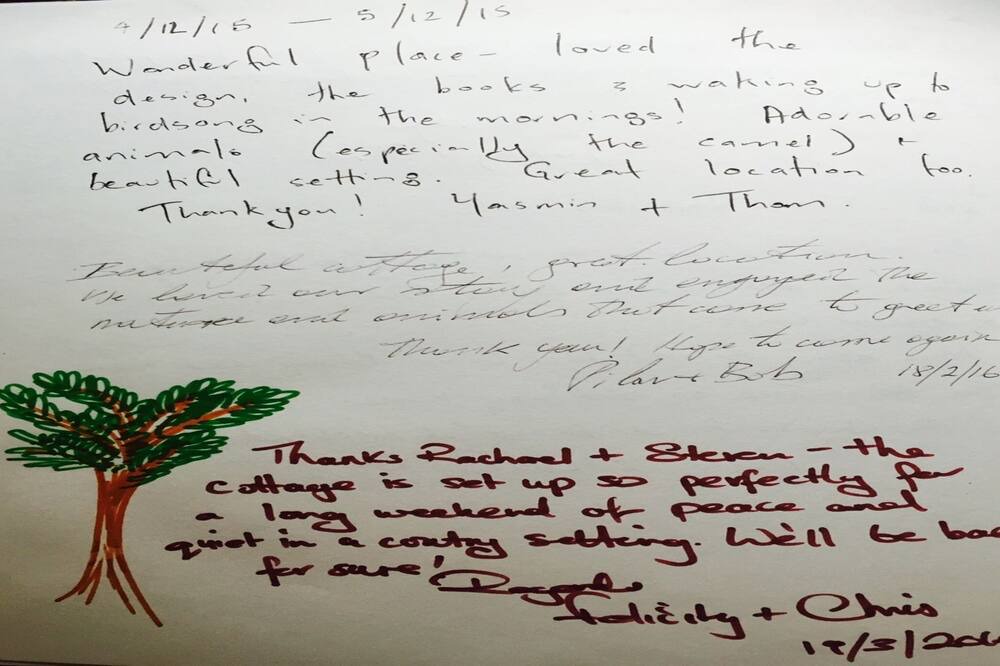 4/12/15 — 5/12/15
Wonderful place - loved the
design, the books & waking up to
birdsong in the mornings! Adorable
animals (especially the camel) +
beautiful setting. Great location too.
Thank you! Yasmin + Thom.
Beautiful cottage, great location.
We loved our stay and enjoyed the
nature and animals that come to greet u
Thank you! Hope to come again
Pilar + Bob 18/2/16
Thanks Rachael + Steven - the
cottage is set up so perfectly for
a long weekend of peace and
quiet in a country setting. We'll be bac
for sure! Regards
Felicity + Chris
19/3/20